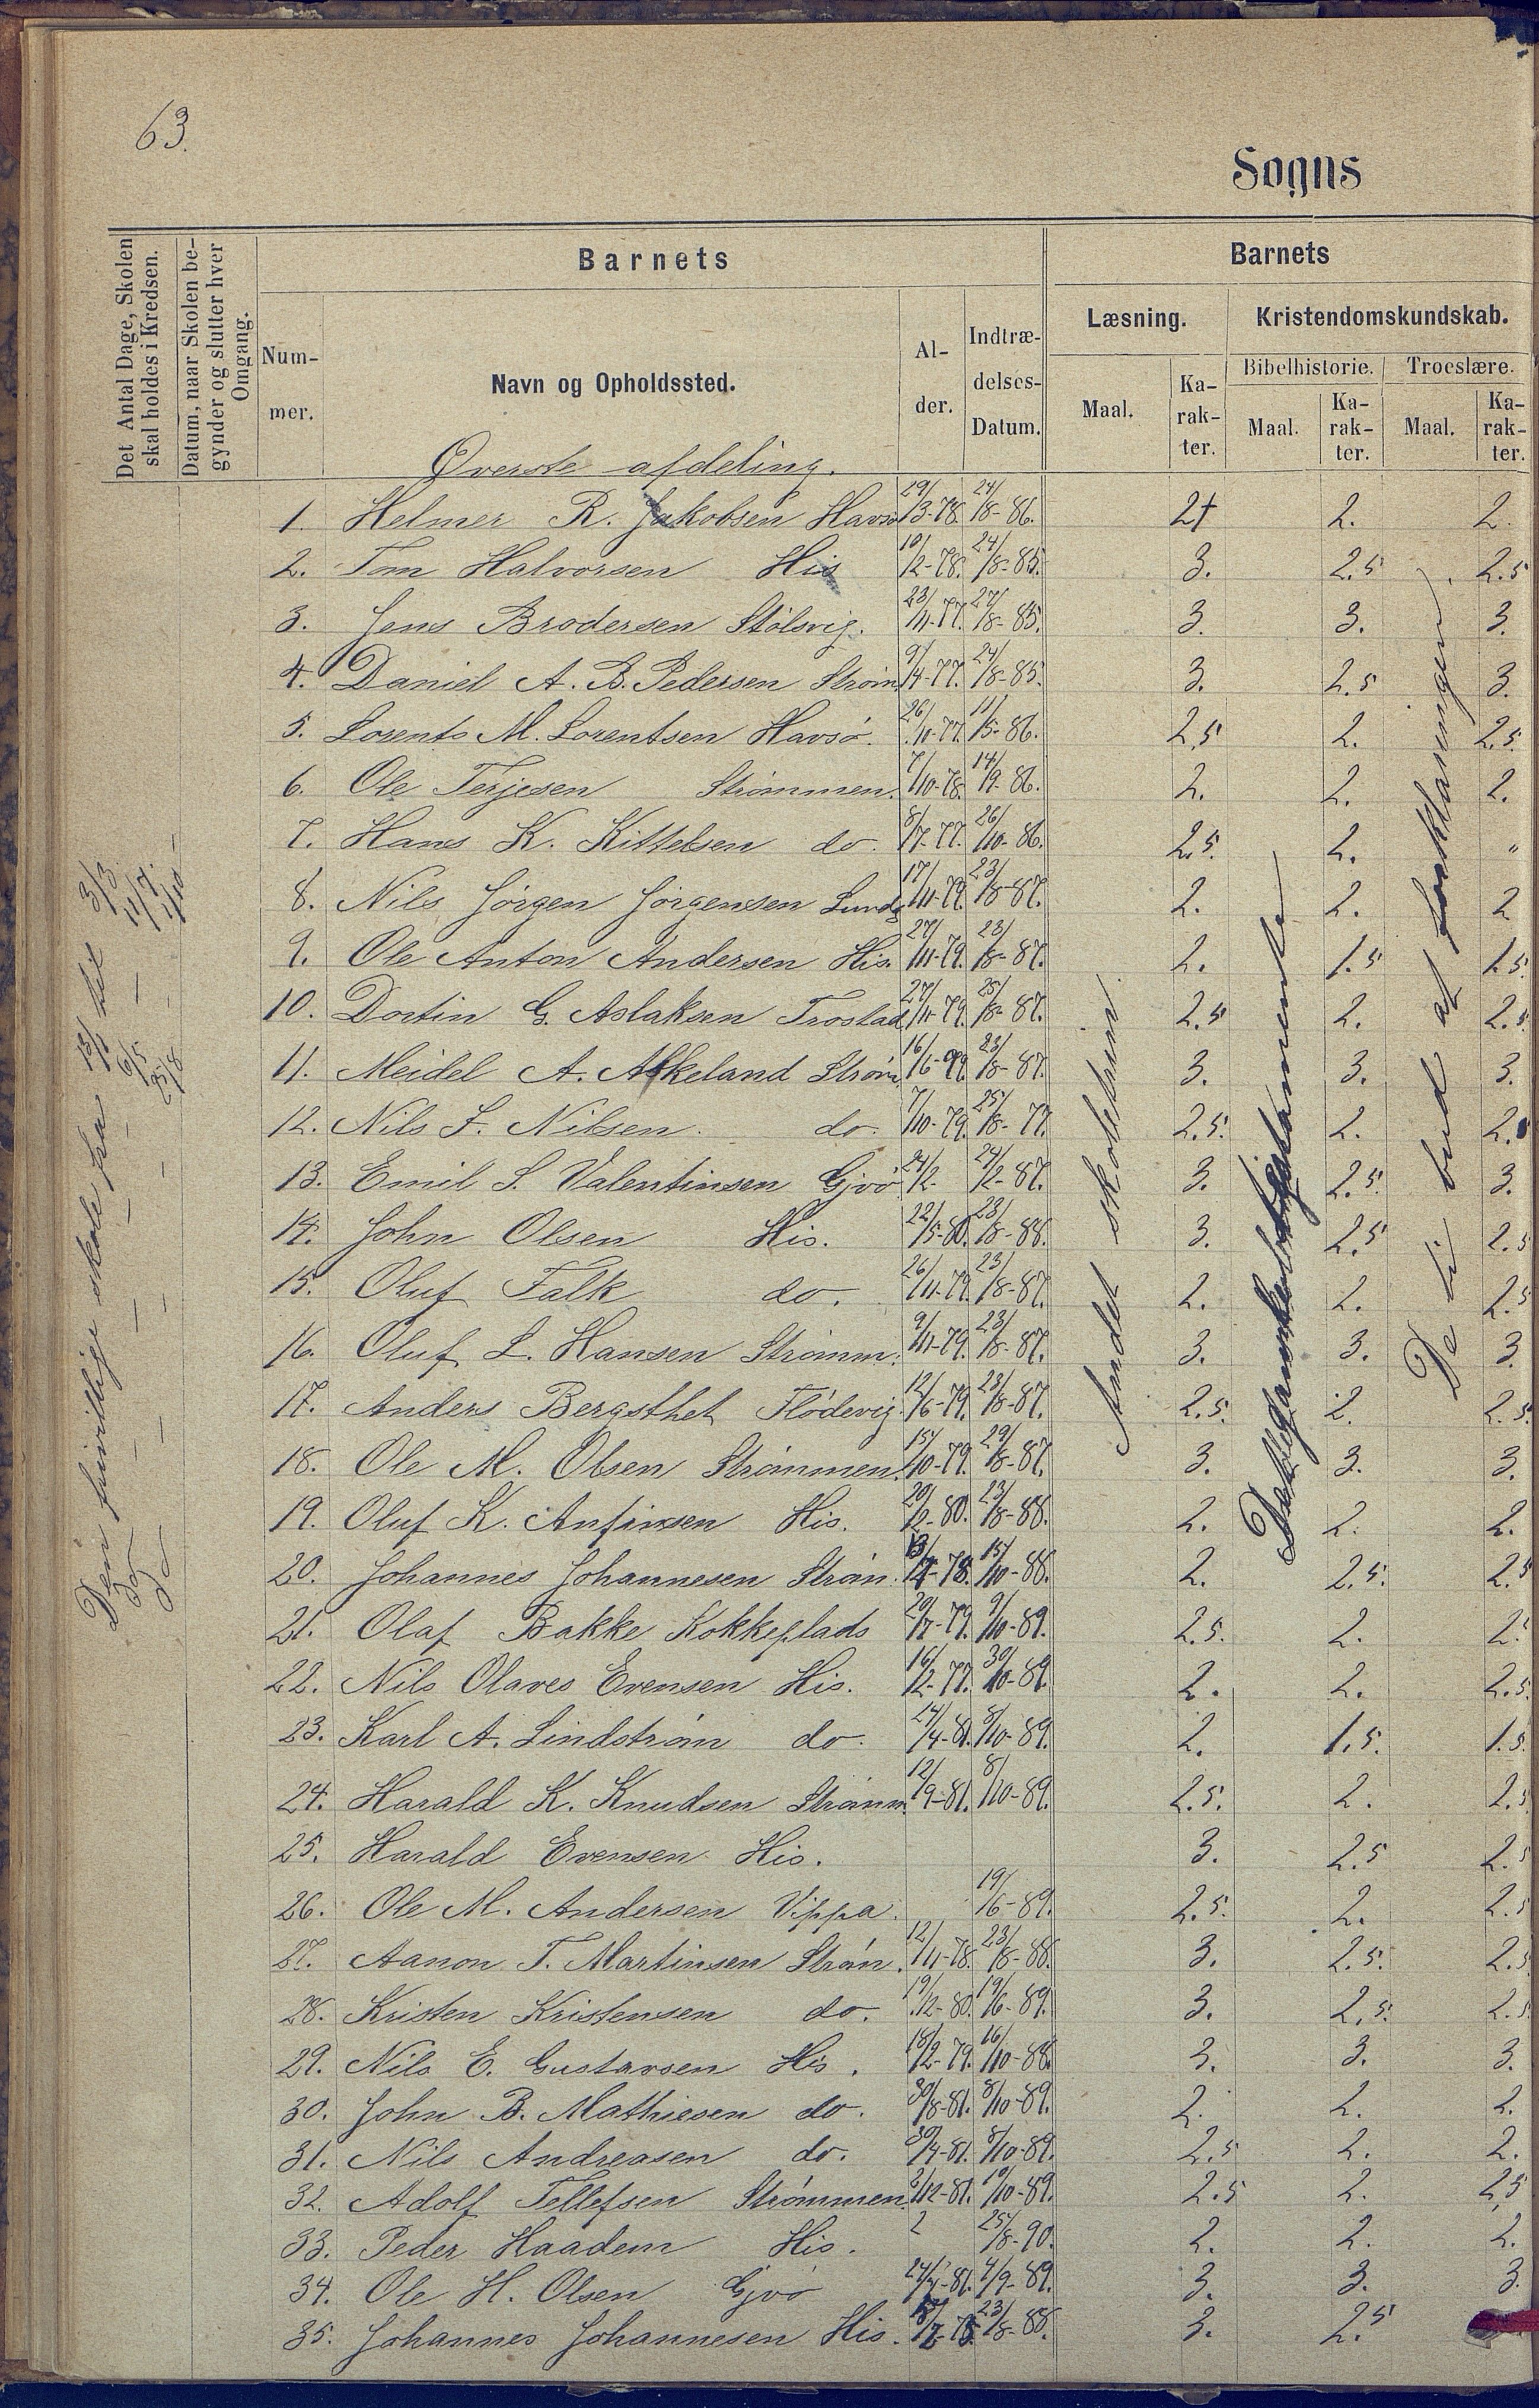 63.
Sogns
Det Antal Dage, Skolen skal holdes i Kredsen.
Datum, naar Skolen begynder og slutter hver Omgang.
Barnets
Barnets
Nummer.
Navn og Opholdssted.
Alder.
Indtrædelses-Datum.
Læsning.
Kristendomskundskab.
Bibelhistorie.
Troeslære.
Maal.
Karakter.
Maal.
Karakter.
Maal.
Karakter.
Øverste afdeling.
1. Helmer R. Jakobsen Havsø 29/3-78. 24/8-86. 2+ 2. 2.
2. Tom Halvorsen His 10/2-78. 24/8-85. 3. 2.5 2.5
3. Jens Brodersen Stölsvig. 23/11-77. 27/8-85. 3. 3. 3.
4. Daniel A. B. Pedersen Strøm 9/4-77. 24/8-85. 3. 2.5 3.
5. Lorents M. Lorentsen Havsö. 26/10-77. 11/5-86. 2.5 2. 2.5.
6. Ole Terjesen Strömmen. 7/10-78. 14/9-86. 2. 2. 2.
7. Hans K. Kittelsen do. 8/7-77. 26/10-86. 2.5. 2. "
8. Nils Jörgen Jörgensen 17/11-79. 23/8-87. 2. 2. 2
9. Ole Anton Andersen His. 27/11-79. 23/8-87. 2. 1.5 1.5
10. Dortin G. Aslaksen Trostad 27/11-79. 25/8-87. 2.5 2. 2.5
11. Meidel A. Askeland Ström 16/6-79. 23/8-87. 3. 3. 3.
12. Nils F. Nilsen. do. 7/10-79. 25/8-77. 2.5. 2. 2.
13. Emil S. Valentinsen Gjvö 24/2- 24/2-87. 3. 2.5. 3.
14. John Olsen His. 22/5-80. 23/8-88. 3. 2.5 2.5
15. Oluf Falk do. 26/11-79. 23/8-87. 2. 2. 2.5
16. Oluf L. Hansen Strömm. 9/11-79. 23/8-87. 3. 3. 3.
17. Anders Bergsthet Flödevig. 12/6-79. 23/8-87. 2.5. 2. 2.5.
18. Ole M. Olsen Strömmen. 15/10-79. 29/8-87. 3. 3. 3.
19. Oluf K. Anfinsen His. 20/2-80. 23/8-88. 2. 2. 2.
20. Johannes Johannesen Ström. 15/10-88. 2. 2.5. 2.5
21. Olaf Bakke Kokkeplads 20/7-79. 9/10-89. 2.5. 2. 2.
22. Nils Olaves Evensen His. 16/2-77. 30/10-89. 2. 2. 2.5.
23. Karl A. Lindström do. 24/4-81. 8/10-89. 2. 1.5. 1.5.
24. Harald K. Knudsen Strömm. 12/9-81. 8/10-89. 2.5. 2. 2.5
25. Harald Evensen His. 3. 2.5 2.5
26. Ole M. Andersen Vippa. 19/6-89. 2.5. 2. 2.5
27. Aanon T. Martinsen Ström. 12/11-78. 23/8-88. 3. 2.5. 2.5
28. Kristen Kristensen do. 19/12-80. 19/6-89. 3. 2.5. 2.5
29. Nils E. Gustavsen His. 18/2-79. 16/10-88. 3. 3. 3.
30. John B. Mathiesen do. 30/8-81. 8/10-89. 2. 2. 2.
31. Nils Andreasen do. 30/4-81. 8/10-89. 2.5 2. 2.
32. Adolf Tellefsen Strömmen. 2/12-81. 10/10-89. 2.5 2. 2.5
33. Peder Haadem His. 2 25/8-90. 2. 2. 2.
34. Ole H. Olsen Gjvö 4/9-89. 3. 3. 3.
35. Johannes Johannesen His. 23/8-88. 3. 2.5
Den frivillige skole fra 13/1 til 3/3
do — — 6/5 — 11/7
do — — 25/8 — 1/10
Andet skoletrin.
De ti bud af forklaringen.